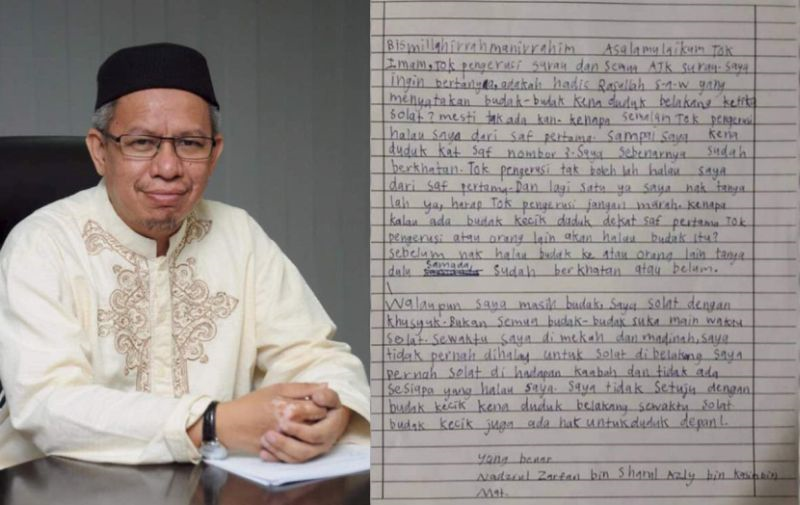 Bismillahirrahmanirrahim Asalamulaikum Tok
Imam, Tok pengerusi surau dan semua AJK surau. Saya
ingin bertanya, adakah hadis Rasullah S.A.W yang
menyatakan budak-budak kena duduk belakang ketika
solat? mesti tak ada kan. kenapa semalam Tok pengerusi
halau saya dari saf pertama. Sampai saya kena
duduk kat saf nombor 3. Saya sebenarnya sudah
berkhatan. Tok pengerusi tak boleh lah halau saya
dari saf pertama. Dan lagi satu ya saya nak tanya
lah ya, harap Tok pengerusi jangan marah. kenapa
kalau ada budak kecik duduk dekat saf pertama Tok
pengerusi atau orang lain akan halau budak itu?
sebelum nak halau budak ke atau orang lain tanya
dulu samada, sudah berkhatan atau belum.
Walaupun saya masih budak, saya solat dengan
khusyuk. Bukan semua budak-budak suka main waktu
solat. Sewaktu saya di mekah dan madinah, saya
tidak pernah dihalau untuk solat di belakang saya
pernah solat di hadapan kaabah dan tidak ada
sesiapa yang halau saya. Saya tidak setuju dengan
budak kecik kena duduk belakang sewaktu solat
budak kecik juga ada hak untuk duduk depan!.
yang benar
Nadzrul Zarfan bin Sharul Azly bin Kasim bin
Mat.